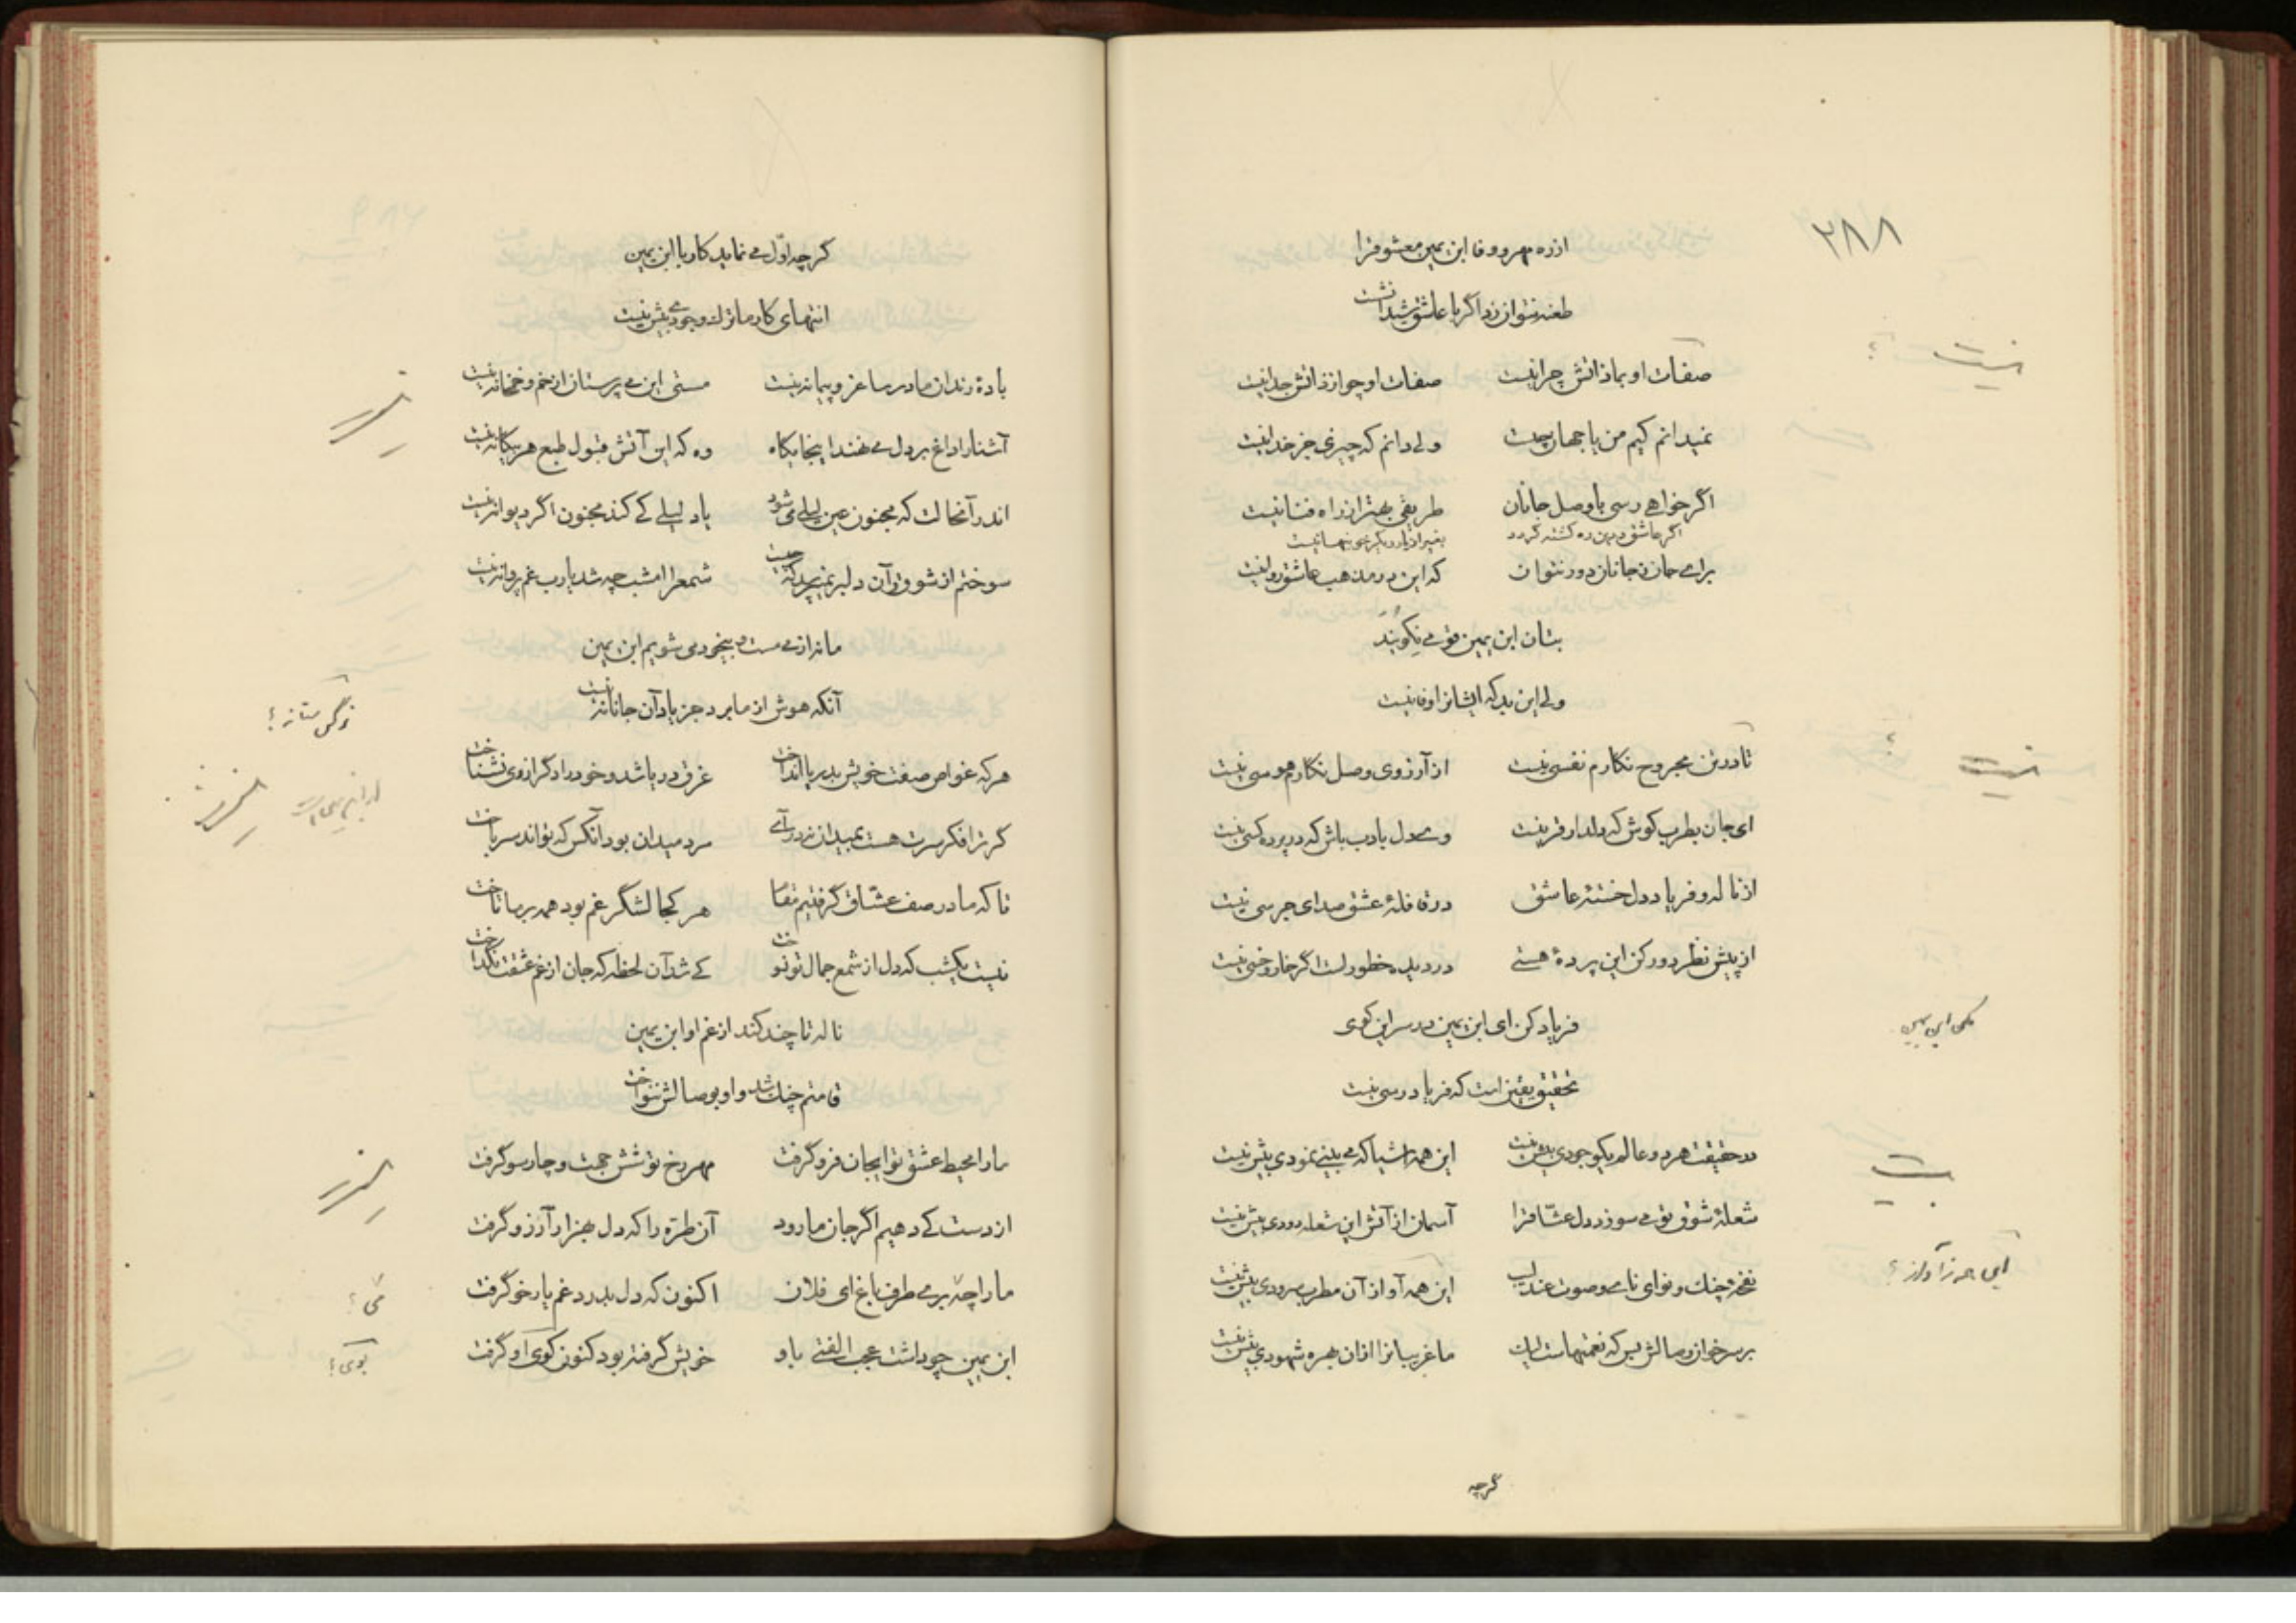 ۲۸۸
از ره مهر و وفا ابن یمین معشوق را
طعنه نتوان زد اگر با عاشق شیدا نشست
صفات او بما ذاتش چرا نیست صفات او چو از ذاتش جدا نیست
نمیدانم کیم من یا جهان چیست ولی دانم که چیزی جز خدا نیست
اگر خواهی رسی با وصل جانان طریقی بهتر از راه فنا نیست
اگر عاشق درین ره کشته گردد بغیر از یار دیگر خونبها نیست
برای جان ز جانان دور نتوان که این در مذهب عاشق روا نیست
بتان ابن یمین قومی نکویند
ولی این بد که ایشانرا وفا نیست
تا در تن مجروح نگارم نفسی نیست از آرزوی وصل نگارم هوسی نیست
ای جان بطرب کوش که دلدار قرینت وی دل بادب باش که در پرده کسی نیست
از ناله و فریاد دل خستهٔ عاشق در قافلهٔ عشق صدای جرسی نیست
از پیش نظر دور کن این پردهٔ هستی در دیده خطورست اگر خار و خسی نیست
فریاد کن ای ابن یمین در سر این کوی
مکن ابن یمین
تحقیق یقین است که فریادرسی نیست
در حقیقت هر دو عالم یکوجودی بیش نیست این همه اشیا که می بینی نمودی بیش نیست
شعلهٔ شوق تو می سوزد دل عشّاق را آسمان از آتش این شعله دودی بیش نیست
نغمهٔ چنگ و نوای نای و صوت عندلیب این همه آواز آن مطرب سرودی بیش نیست
بر سر خوان وصالش بس که نعمتهاست لیک ما غریبانرا ازان بهره شهودی بیش نیست
گرچه
گرچه اوّل می نماید کار با ابن یمین
انتهای کار ما ترک وجودی بیش نیست
بادهٔ رندان ما در ساغر و پیمانه نیست مستی این می پرستان از خم و خمخانه نیست
آشنا را داغ بر دل می نهند اینجایگاه وه که این آتش قبول طبع هر بیگانه نیست
اندر آنحالت که مجنون عین لیلی می شود یاد لیلی کی کند مجنون اگر دیوانه نیست
سوختم از شوق و آن دلبر نمیپرسد که چیست شمع را امشب چه شد یارب غم پروانه نیست
ما نه از می مست و بیخود می شویم ابن یمین
آنکه هوش از ما برد جز یاد آن جانانه نیست
هر که غواص صفت خویش بدریا انداخت غرق دریا شد و خود را دگر از وی نشناخت
گر ترا فکر سرت هست بمیدان نه در آی مرد میدان بود آنکس که تواند سر باخت
تا که ما در صف عشّاق گرفتیم مقام هر کجا لشگر غم بود همه بر ما تاخت
نیست یکشب که دل از شمع جمال تو نسوخت کی شد آن لحظه که جان از غم عشقت نگداخت
ناله تا چند کند از غم او ابن یمین
قامتم چنگ شد و او بوصالش ننواخت
ما را محیط عشق تو ایجان فرو گرفت مهر رخ تو شش جهت و چارسو گرفت
از دست کی دهیم اگر جان ما رود آن طرّه را که دل بهزار آرزو گرفت
ما را چه بری طرف باغ ای فلان اکنون که دل بدرد غم یار خو گرفت
ابن یمین چو داشت عجب الفتی باو خویش گرفته بود کنون کوی او گرفت